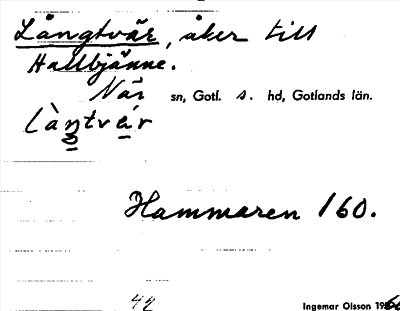 Långtvär, åker till
Hallbjänne.
När sn, Gotl. s. hd, Gotlands län.
Làŋtvẹr
Hammaren 160.
42
Ingemar Olsson 1960